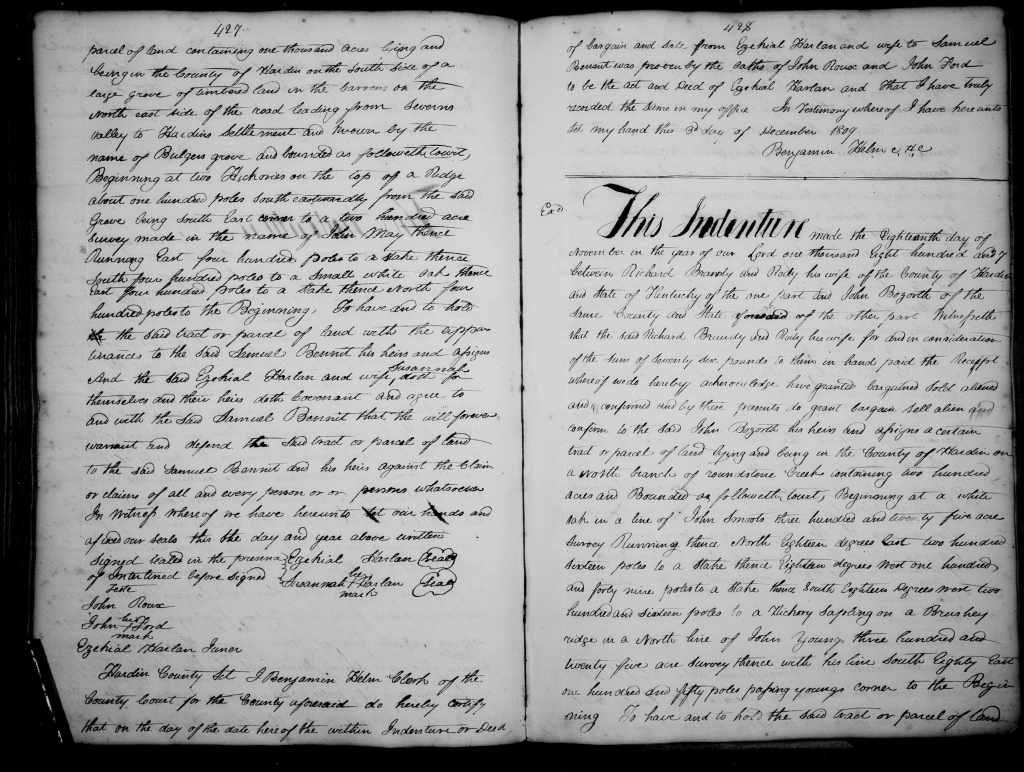 427
parcel of land containing one thousand acres lying and
being in the County of Hardin on the South Side of a
large grove of timbered land in the barrens on the
North east side of the road leading from Severns
valley to Hardins Settlement and known by the
name of Bulgers grove and bounded as followeth (court,
Beginning at two Hickories on the top of a Ridge
about one hundred poles south eastwardly from the said
Grove being South East corner to a two hundred acre
survey made in the name of John May thence
Running East four hundred poles to a stake thence
South four hundred poles to a Small white oak thence
east four hundred poles to a stake thence North four
hundred poles to the Beginning, To have and to hold
the said tract or parcel of land with the appur
tinances to the Said Samuel Bennit his heirs and assigns
And the said Ezekial Harlan and wife Susannah doth for
themselves and their heirs doth Covenant and agree to
and with the Said Samuel Bennit that the will forever
warrant and defend the said tract or parcel of land
to the said Samuel Bennit and his heirs against the Claim
or claims of all and every person or or persons whatsoever
In Witness whereof we have hereunto set our hands and
afixed our seals this the day and year above written
signed sealed in the presence Ezekial Harlan (Seal)
of Interlined before signed Susannah her + mark Harlan (Seal)
Teste
John Roux
John his + mark Ford
Ezekial Harlan Juner
Hardin County Sct I Benjamin Helm Clerk of the
County Court for the County aforesaid do hereby certify
that on the day of the date here of the within Indenture or Deed
428
of bargain and sale from Ezekial Harlan and wife to Samuel
Bennit was proven by the oaths of John Roux and John Ford
to be the act and Deed of Ezekial Harlan and that I have truly
recorded the Same in my office In Testimony whereof I have hereunto
set my hand this 3d day of December 1809
Benjamin Helm C.H.C
Exd
This Indenture made the Eighteenth day of
November in the year of our Lord one thousand Eight hundred and 7
between Richard Brandy and Rody his wife of the County of Hardin
and State of Kentucky of the one part and John Bozorth of the
Same County and State of the other part Witnesseth
that the said Richard Brandy and Rody his wife for and in consideration
of the Sum of Seventy six pounds to him in hand paid the Receipt
whereof we do hereby acknowledge have granted bargained Sold aliened
and confirmed and by these presents do grant bargain sell alien and
confirm to the said John Bozorth his heirs and assigns a certain
tract or parcel of land lying and being in the County of Hardin on
a North branch of roundstone Creek containing two hundred
acres and Bounded as followeth (court, Beginning at a white
oak in a line of John Smoots three hundred and twenty five acre
survey Running thence North Eighteen degrees East two hundred
sixteen poles to a stake thence Eighteen degrees West one hundred
and forty nine poles to a stake thence South Eighteen Degrees west two
hundred and sixteen poles to a Hickory Sapling on a Brushey
ridge in a North line of John Young three hundred and
twenty five acre survey thence with his line South Eighty East
one hundred and fifty poles passing youngs corner to the Begin
ning To have and to hold the said tract or parcel of land